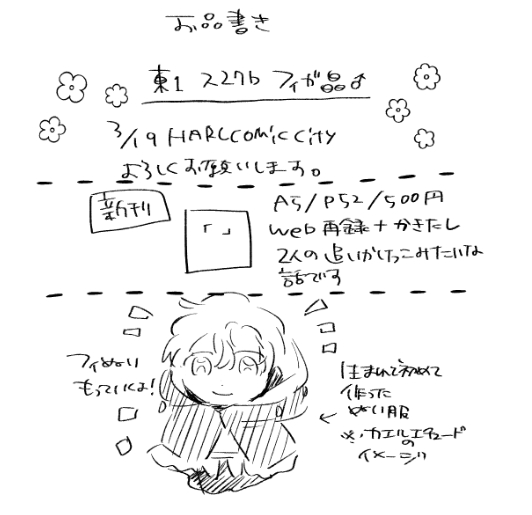 お品書き
東1 ス27b フィガ晶♂
3/19 HARUCOMiCCiTy
よろしくお願いします。
新刊
「」
A5/P52/500円
web再録+かきたし
2人の追いかけっこみたいな
話です
フィぬい
もっていくよ!
生まれて初めて
作った
ぬい服
※カエルエチュード
の
イメージ